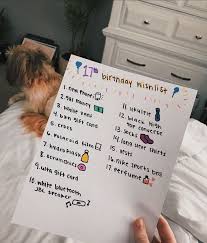 17th birthday wishlist
1. new phone
2. $$ money
3. house shoes
4. bath gift card
5. crocs
6. polaroid film
7. hydro flask
8. scrunchies
9. ulta gift card
10. white bluetooth
JBL speaker
11. ukulele
12. black high
top converse
13. socks
14. long uni shirts
15. vests
16. nike sports bras
17. perfume